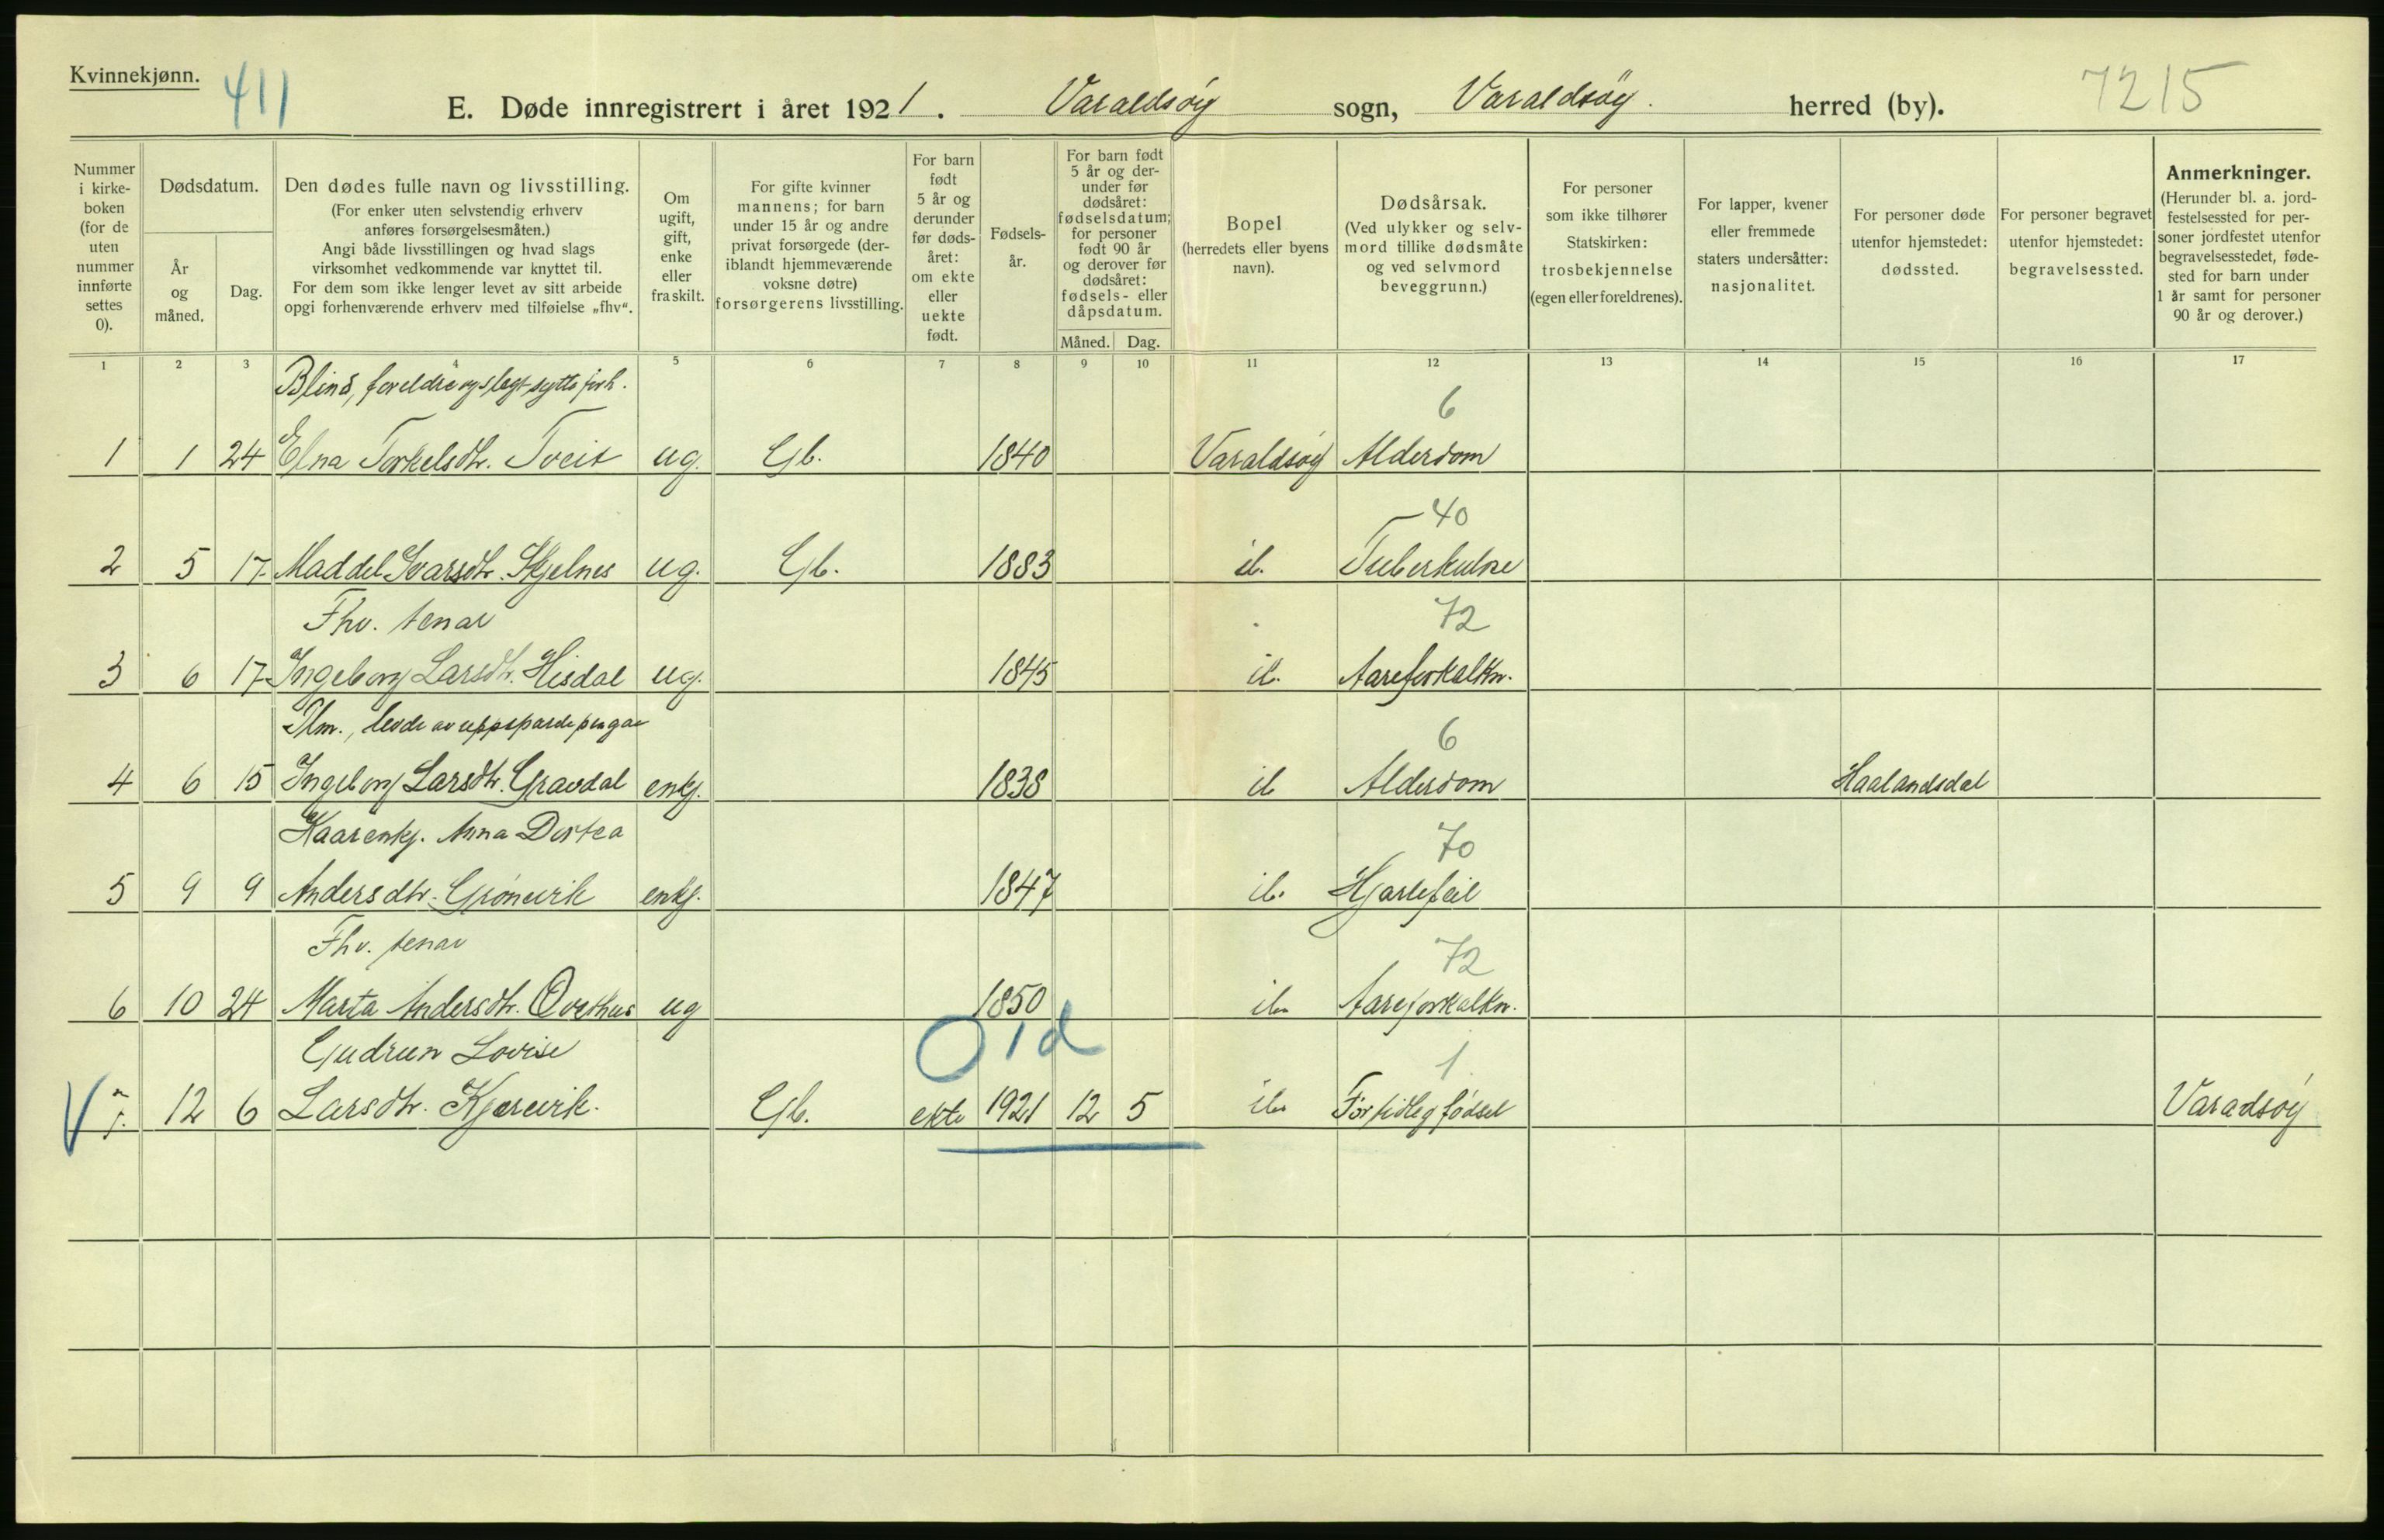 Kvinnekjønn.
411
E. Døde innregistrert i året 1921. Varaldsøy sogn, Varaldsøy. herred (by).
7215
Nummer i kirke- boken (for de uten nummer innførte settes 0).
Dødsdatum.
År og måned.
Dag.
Den dødes fulle navn og livsstilling.
(For enker uten selvstendig erhverv
anføres forsørgelsesmåten.)
Angi både livsstillingen og hvad slags
virksomhet vedkommende var knyttet til.
For dem som ikke lenger levet av sitt arbeide
opgi forhenværende erhverv med tilføielse „fhv“.
Om ugift, gift, enke eller fraskilt.
For gifte kvinner
mannens; for barn
under 15 år og andre
privat forsørgede (der-
iblandt hjemmeværende
voksne døtre)
forsørgerens livsstilling.
For barn født 5 år og derunder før døds- året: om ekte eller uekte født.
Fødsels- år.
For barn født
5 år og der-
under før
dødsåret:
fødselsdatum;
for personer
født 90 år
og derover før
dødsåret:
fødsels- eller
dåpsdatum.
Måned. Dag.
Bopel
(herredets eller byens
navn).
Dødsårsak.
(Ved ulykker og selv-
mord tillike dødsmåte
og ved selvmord
beveggrunn.)
For personer
som ikke tilhører
Statskirken:
trosbekjennelse
(egen eller foreldrenes).
For lapper, kvener
eller fremmede
staters undersåtter:
nasjonalitet.
For personer døde
utenfor hjemstedet:
dødssted.
For personer begravet
utenfor hjemstedet:
begravelsessted.
Anmerkninger.
(Herunder bl. a. jord-
festelsessted for per-
soner jordfestet utenfor
begravelsesstedet, føde-
sted for barn under
1 år samt for personer
90 år og derover.)
1 2 3 4 5 6 7 8 9 10 11 12 13 14 15 16 17
Blind, foreldre og slegt
6
1 1 24 Elna Torkelsdtr. Tveit ug. Gb. 1840 Varaldsøy Alderdom
40
2 5 17 Maddel Ivarsdtr. Skjelnes ug. Gb. 1883 ib. Tuberkulose
Fhv. tenar
72
3 6 17 Ingeborg Larsdtr. Hisdal ug. 1845 ib. Aareforkalkn.
levde av uppsparde pengar
6
4 6 15 Ingeborg Larsdtr. Gravdal enkj. 1838 ib Alderdom Haalandsdal
Kaarenkj. Anna Dortea
70
5 9 9 Andersdtr. Grønevik enkj. 1847 ib. Hjartefeil
Fhv. tenar
72
6 10 24 Marta Andersdtr. Øvethus ug 1850 ib. Aareforkalkn.
Gudrun Lovise
0 1 d
1
V 7. 12 6 Larsdtr. Kjærevik. Gb. ekte 1921 12 5 ib. For tidleg fødsel Varadsøy